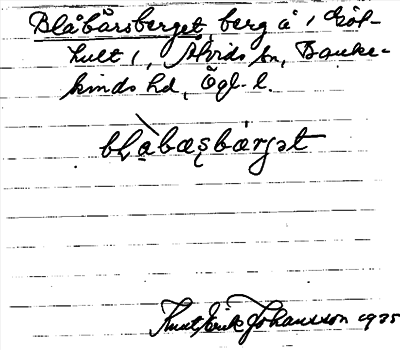 Blåbärsberget, berg å 1 Göt-
hult 1, Alvids sn, Banke-
kinds hd, Ögl. l.
bḷàbæṣbærjət
Knut Erik Johansson 1935